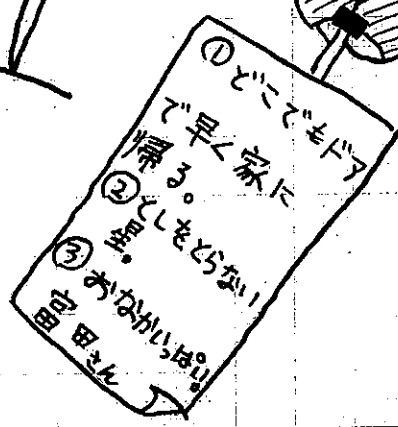 ①どこでもドア
で早く家に
帰る。
②としをとらない
星。
③おなかいっぱい。
富田さん